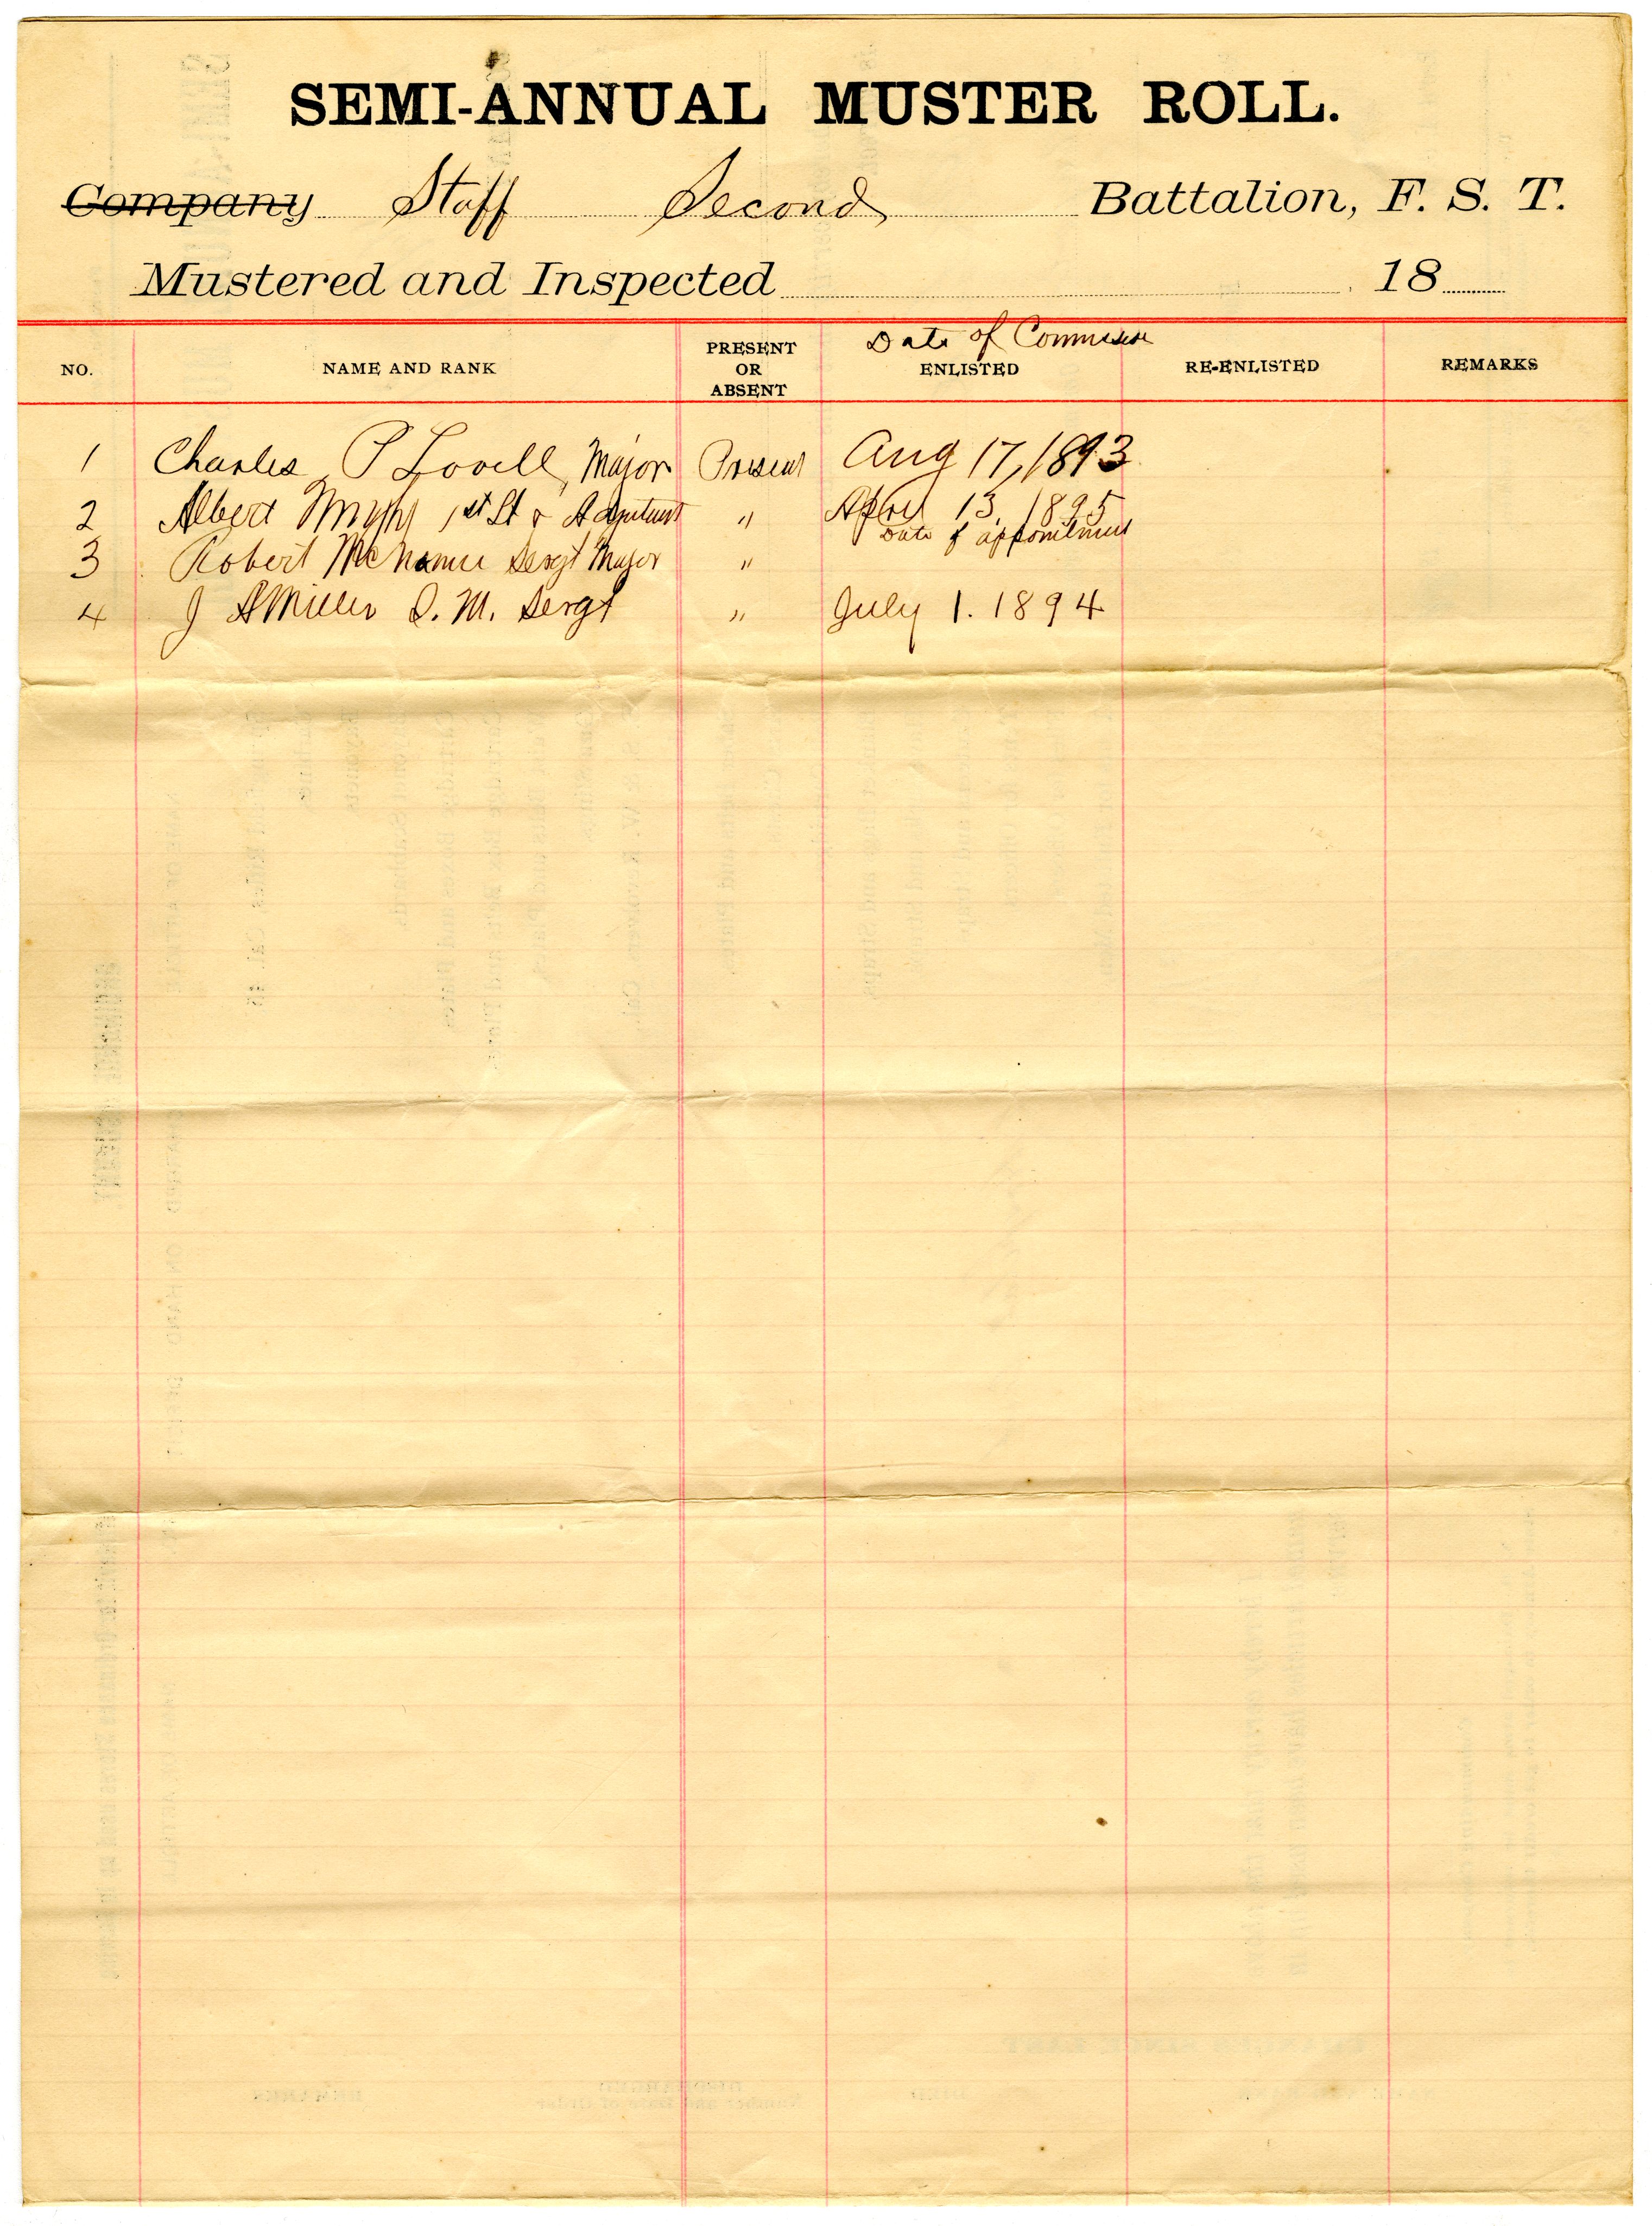 SEMI-ANNUAL MUSTER ROLL.
Company Staff Second Battalion, F. S. T.
Mustered and Inspected 18
Date of Commission
NO. NAME AND RANK PRESENT OR ABSENT ENLISTED RE-ENLISTED REMARKS
1 Charles P Lovell, Major Present Aug 17, 1893
2 Albert 1st Lt & Adjutant " April 13, 1895
Date of appointment
3 Robert McNamee Sergt Major "
4 J A Miller Q. M. Sergt " July 1. 1894